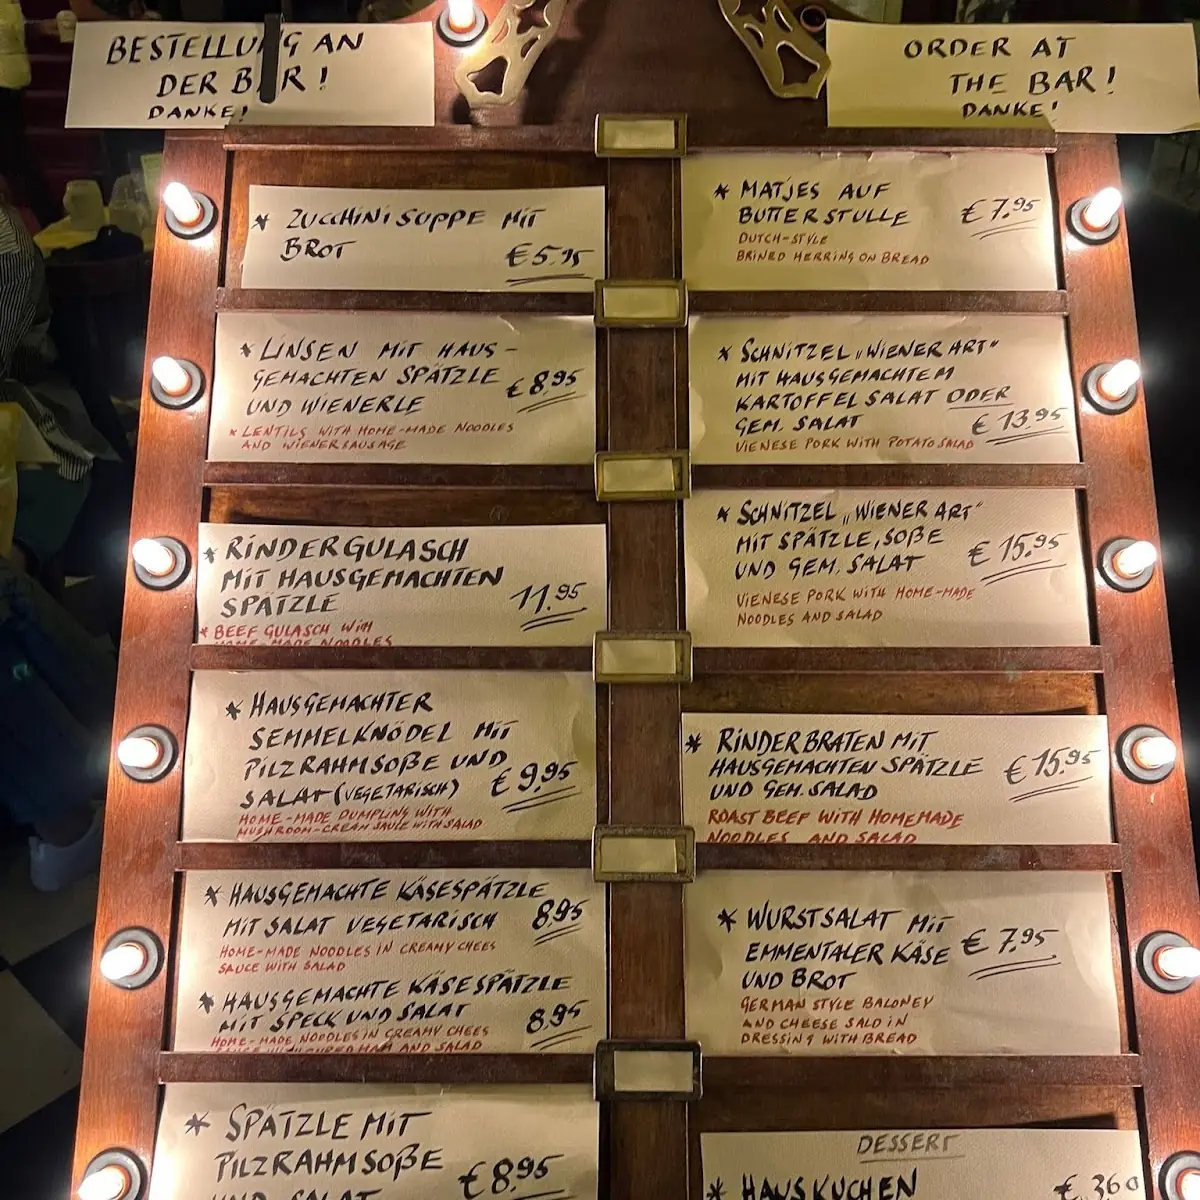 BESTELLUNG AN
DER BAR!
DANKE!
ORDER AT
THE BAR!
DANKE!
* ZUCCHINISUPPE MIT
BROT
€ 5.95
* LINSEN MIT HAUS-
GEMACHTEN SPÄTZLE € 8,95
UND WIENERLE
* LENTILS WITH HOME-MADE NOODLES
AND WIENERSAUSAGE
* RINDERGULASCH
MIT HAUSGEMACHTEN
SPÄTZLE 11.95
* BEEF GULASCH WITH
HOME-MADE NOODLES
* HAUSGEMACHTER
SEMMELKNÖDEL MIT
PILZRAHMSOßE UND
SALAT (VEGETARISCH) € 9,95
HOME-MADE DUMPLING WITH
MUSHROOM-CREAM SAUCE WITH SALAD
* HAUSGEMACHTE KÄSESPÄTZLE
MIT SALAT VEGETARISCH 8,95
HOME-MADE NOODLES IN CREAMY CHEES
SAUCE WITH SALAD
* HAUSGEMACHTE KÄSESPÄTZLE
MIT SPECK UND SALAT 8,95
HOME-MADE NOODLES IN CREAMY CHEES
SAUCE WITH CURED HAM AND SALAD
* SPÄTZLE MIT
PILZRAHMSOßE
UND SALAT € 8,95
* MATJES AUF
BUTTERSTULLE € 7.95
DUTCH-STYLE
BRINED HERRING ON BREAD
* SCHNITZEL „WIENER ART"
MIT HAUSGEMACHTEM
KARTOFFELSALAT ODER
GEM. SALAT € 13.95
VIENESE PORK WITH POTATO SALAD
* SCHNITZEL „WIENER ART"
MIT SPÄTZLE, SOßE
UND GEM. SALAT € 15.95
VIENESE PORK WITH HOME-MADE
NOODLES AND SALAD
* RINDERBRATEN MIT
HAUSGEMACHTEN SPÄTZLE € 15.95
UND GEM. SALAD
ROAST BEEF WITH HOMEMADE
NOODLES AND SALAD
* WURSTSALAT MIT
EMMENTALER KÄSE € 7.95
UND BROT
GERMAN STYLE BALONEY
AND CHEESE SALD IN
DRESSING WITH BREAD
DESSERT
* HAUSKUCHEN € 3,60